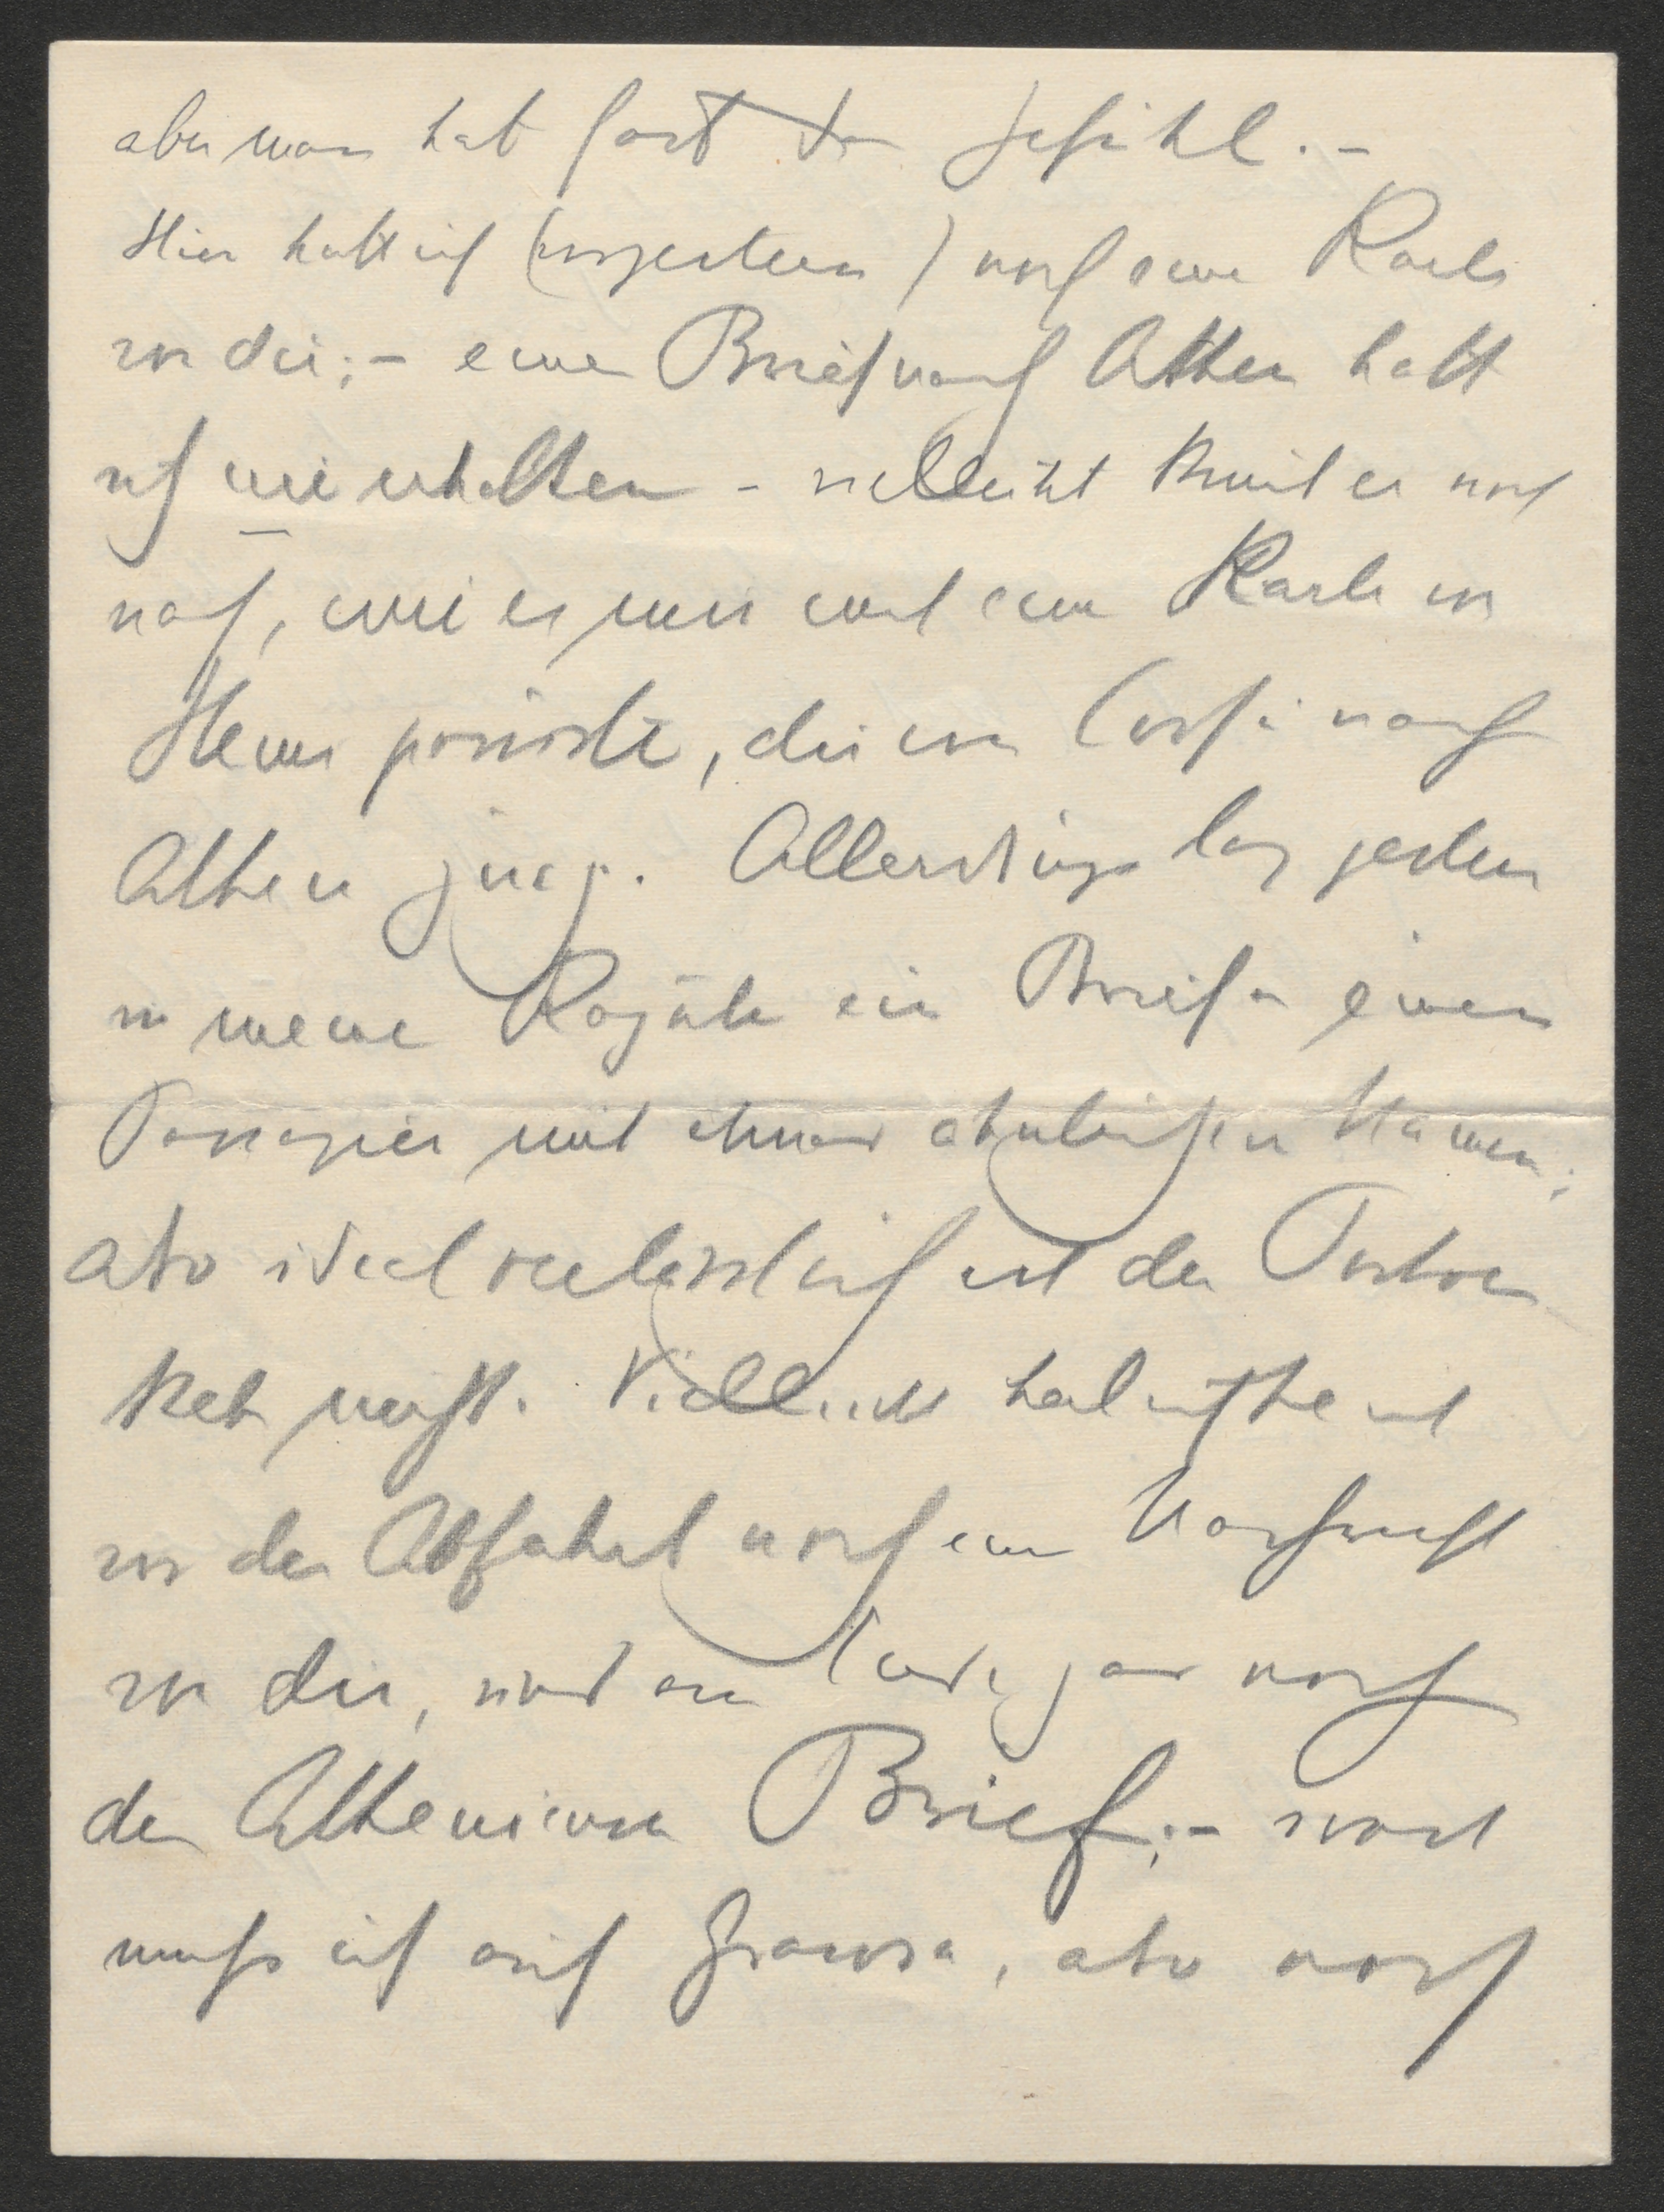 aber man hat fast das Gefühl.–
Hier hatt ich (vorgestern) noch eine Karte
von dir;– einen Brief nach Athen hatt
ich nie erhalten – vielleicht kommt er noch
nach, wie es mir mit einer Karte von
Heini passirte, die von Corfu nach
Athen ging. Allerdings lag gestern
in meiner Kajüte ein Brief an einen
Passagier mit etwas ähnlichen Namen;
also ideal verlässlich ist der Postver
kehr nicht. Vielleicht hab ich heut
vor der Abfahrt noch eine Nachricht
von dir, und am Ende gar noch
den Athenienser Brief;– sonst
muss ich auf , also noch